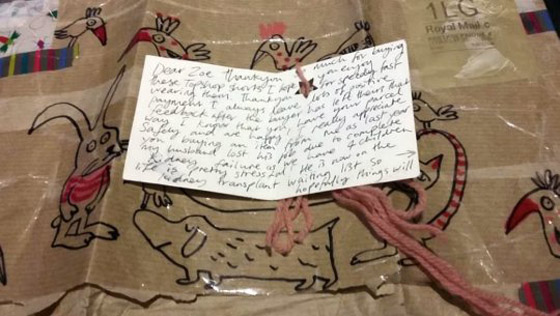 1LG
Royal Mail
Dear Zoe thankyou much for buying
these topshop shorts I hope you enjoy
wearing them. Thankyou for speedy fast
payment I always leave lots of positive
feedback after the buyer has told their that
way I know that you have your parcel
safely and are happy, I really appreciate
you buying an item from me as last year
my husband lost his job due to complete
kidney failure as we have 4 children
life is pretty stressful. He is now on the
kidney transplant waiting list So
hopefully things will